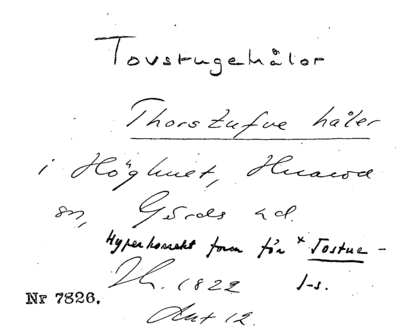 Tovstugehålor
Thorstufve håler
i Höghuet, Huaröd
sn, Gärds hd.
Hyperkorrekt form för * Tostue -
Jh. 1822 J-s.
Nr 7826. Akt 12.